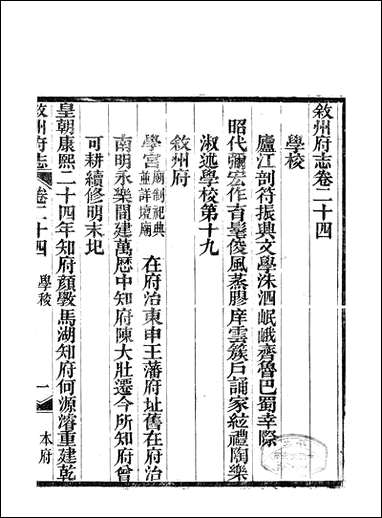 敘州府志卷二十四
學校
廬江剖符振興文學洙泗岷峨齊魯巴蜀幸際
昭代彌宏作育髦俊風蒸膠庠雲簇戶誦家絃禮陶樂
淑述學校第十九
敘州府
學宮廟制祀典並詳壇廟在府治東申王藩府址舊在府治
南明永樂間建萬歷中知府陳大壯遷今所知府曾
可耕續修明末圮
皇朝康熙二十四年知府顏斅馬湖知府何源濬重建乾
敘州府志
卷二十四
學校
一
本府